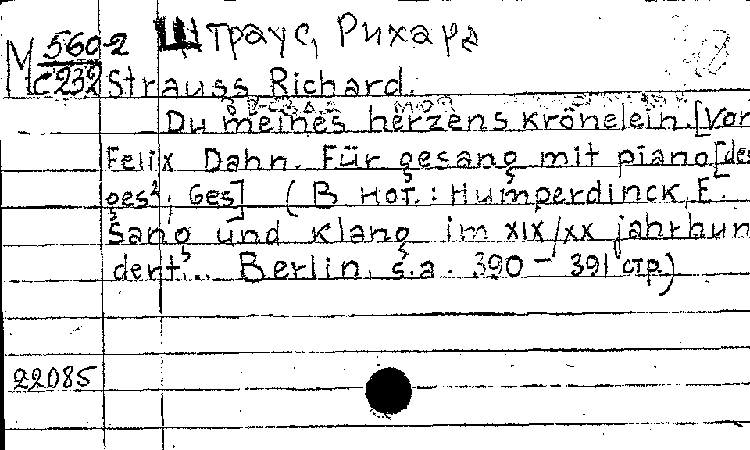 М 560-2 Штраус, Рихард
с 232 Strauss Richard.
Du meines herzens krönelein [Von
Felix Dahn. Für gesang mit piano [des
ges², Ges] (В нот.: Humperdinck, E.
Sang und klang im XIX/XX jahrhun
dert... Berlin, s.a. 390-391 стр.)
22085